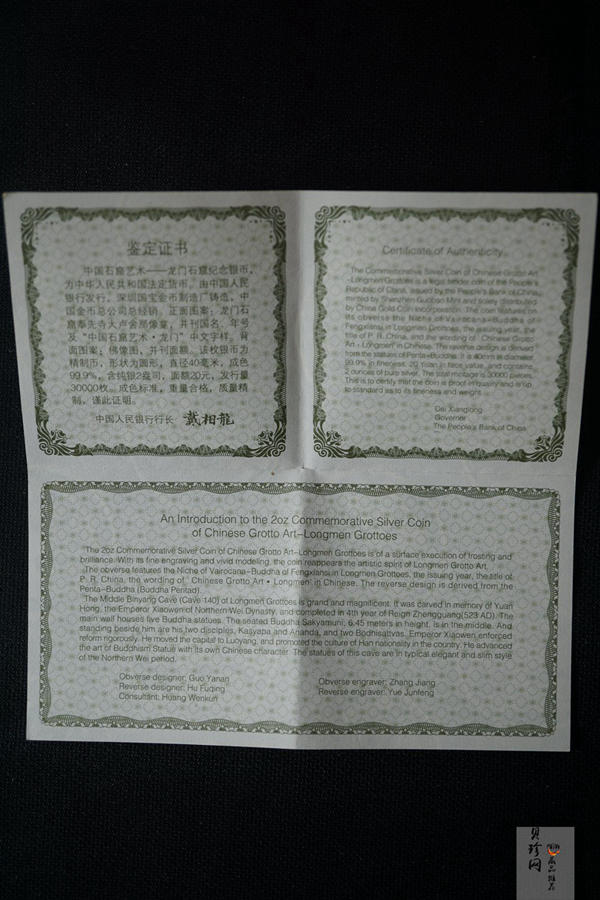 鉴定证书
中国石窟艺术——龙门石窟纪念银币，
为中华人民共和国法定货币。由中国人民
银行发行，深圳国宝金币制造厂铸造，中
国金币总公司总经销。正面图案：龙门石
窟奉先寺大卢舍那像龛，并刊国名、年号
及“中国石窟艺术·龙门”中文字样。背
面图案：佛像图，并刊面额。该枚银币为
精制币，形状为圆形，直径40毫米，成色
99.9%，含纯银2盎司，面额20元，发行量
30000枚。成色标准，重量合格，质量精
制，谨此证明。
中国人民银行行长 戴相龍
Certificate of Authenticity
The Commemorative Silver Coin of Chinese Grotto Art
-Longmen Grottoes is a legal tender coin of the People's
Republic of China, issued by the People's Bank of China,
minted by Shenzhen Guobao Mint and solely distributed
by China Gold Coin Incorporation. The coin features on
its obverse the Niche of Vairocana-Buddha of
Fengxiansi in Longmen Grottoes, the issuing year, the
title of P. R. China, and the wording of "Chinese Grotto
Art · Longmen" in Chinese. The reverse design is derived
from the statues of Penta-Buddha. It is 40mm in diameter,
99.9% in fineness, 20 Yuan in face value, and contains
2 ounces of pure silver. The total mintage is 30000 pieces.
This is to certify that the coin is proof in quality and is up
to standard as to its fineness and weight.
Dai Xianglong
Governor
The People's Bank of China
An Introduction to the 2oz Commemorative Silver Coin
of Chinese Grotto Art-Longmen Grottoes
The 2oz Commemorative Silver Coin of Chinese Grotto Art-Longmen Grottoes is of a surface execution of frosting and
brilliance. With its fine engraving and vivid modeling, the coin reappears the artistic spirit of Longmen Grotto Art.
The obverse features the Niche of Vairocana-Buddha of Fengxiansi in Longmen Grottoes, the issuing year, the title of
P. R. China, the wording of "Chinese Grotto Art • Longmen" in Chinese. The reverse design is derived from the
Penta-Buddha (Buddha Pentad).
The Middle Binyang Cave (Cave 140) of Longmen Grottoes is grand and magnificent. It was carved in memory of Yuan
Hong, the Emperor Xiaowen of Northern Wei Dynasty, and completed in 4th year of Reign Zhengguang(523 AD). The
main wall houses five Buddha statues. The seated Buddha Sakyamuni, 6.45 meters in height, is in the middle. And
standing beside him are his two disciples, Kasyapa and Ananda, and two Bodhisattvas. Emperor Xiaowen enforced
reform rigorously. He moved the capital to Luoyang, and promoted the culture of Han nationality in the country. He advanced
the art of Buddhism Statue with its own Chinese character. The statues of this cave are in typical elegant and slim style
of the Northern Wei period.
Obverse designer: Guo Yanan
Reverse designer: Hu Fuqing
Consultant: Huang Wenkun
Obverse engraver: Zhang Jiang
Reverse engraver: Yue Junfeng
贝珍网